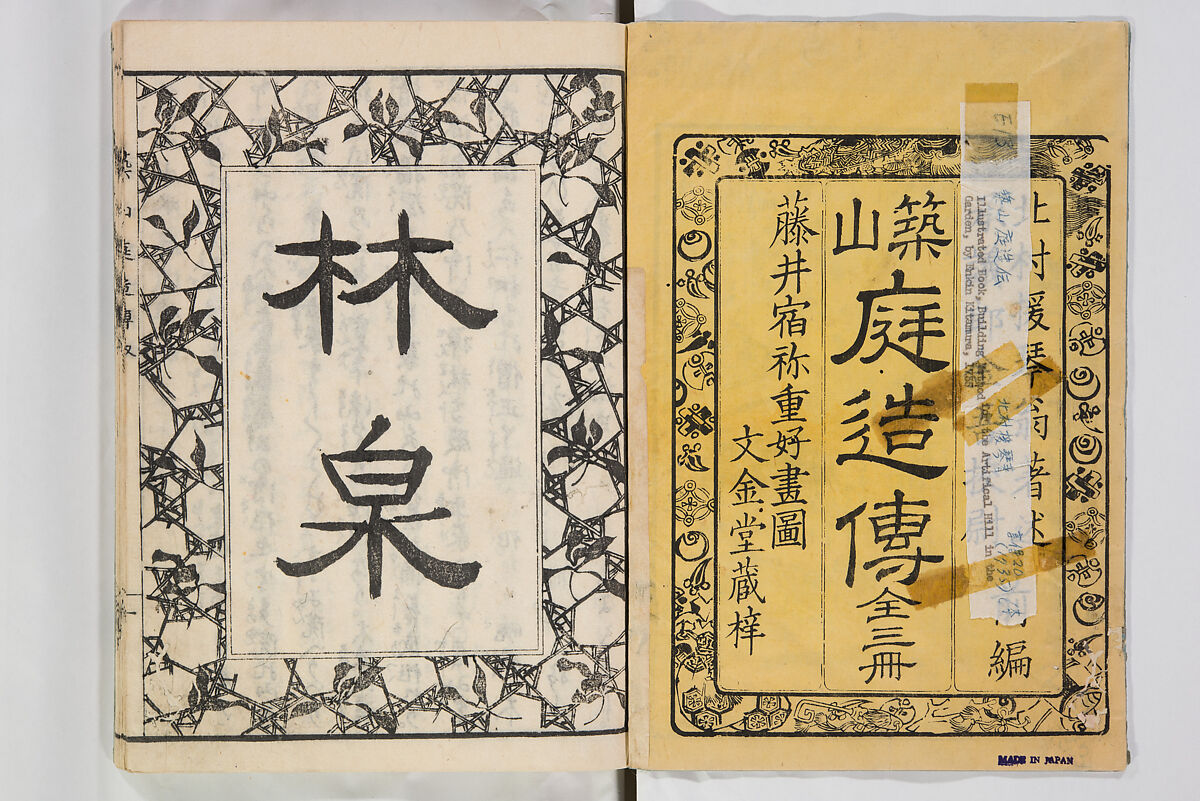 北村援琴翁著述
編
築山庭造傳全三冊
藤井宿祢重好畫圖
文金堂蔵梓
築山庭造伝
北村援琴
Illustrated Book, Building the Artifical Hill in the
Garden, by Kitamura,
MADE IN JAPAN
林泉